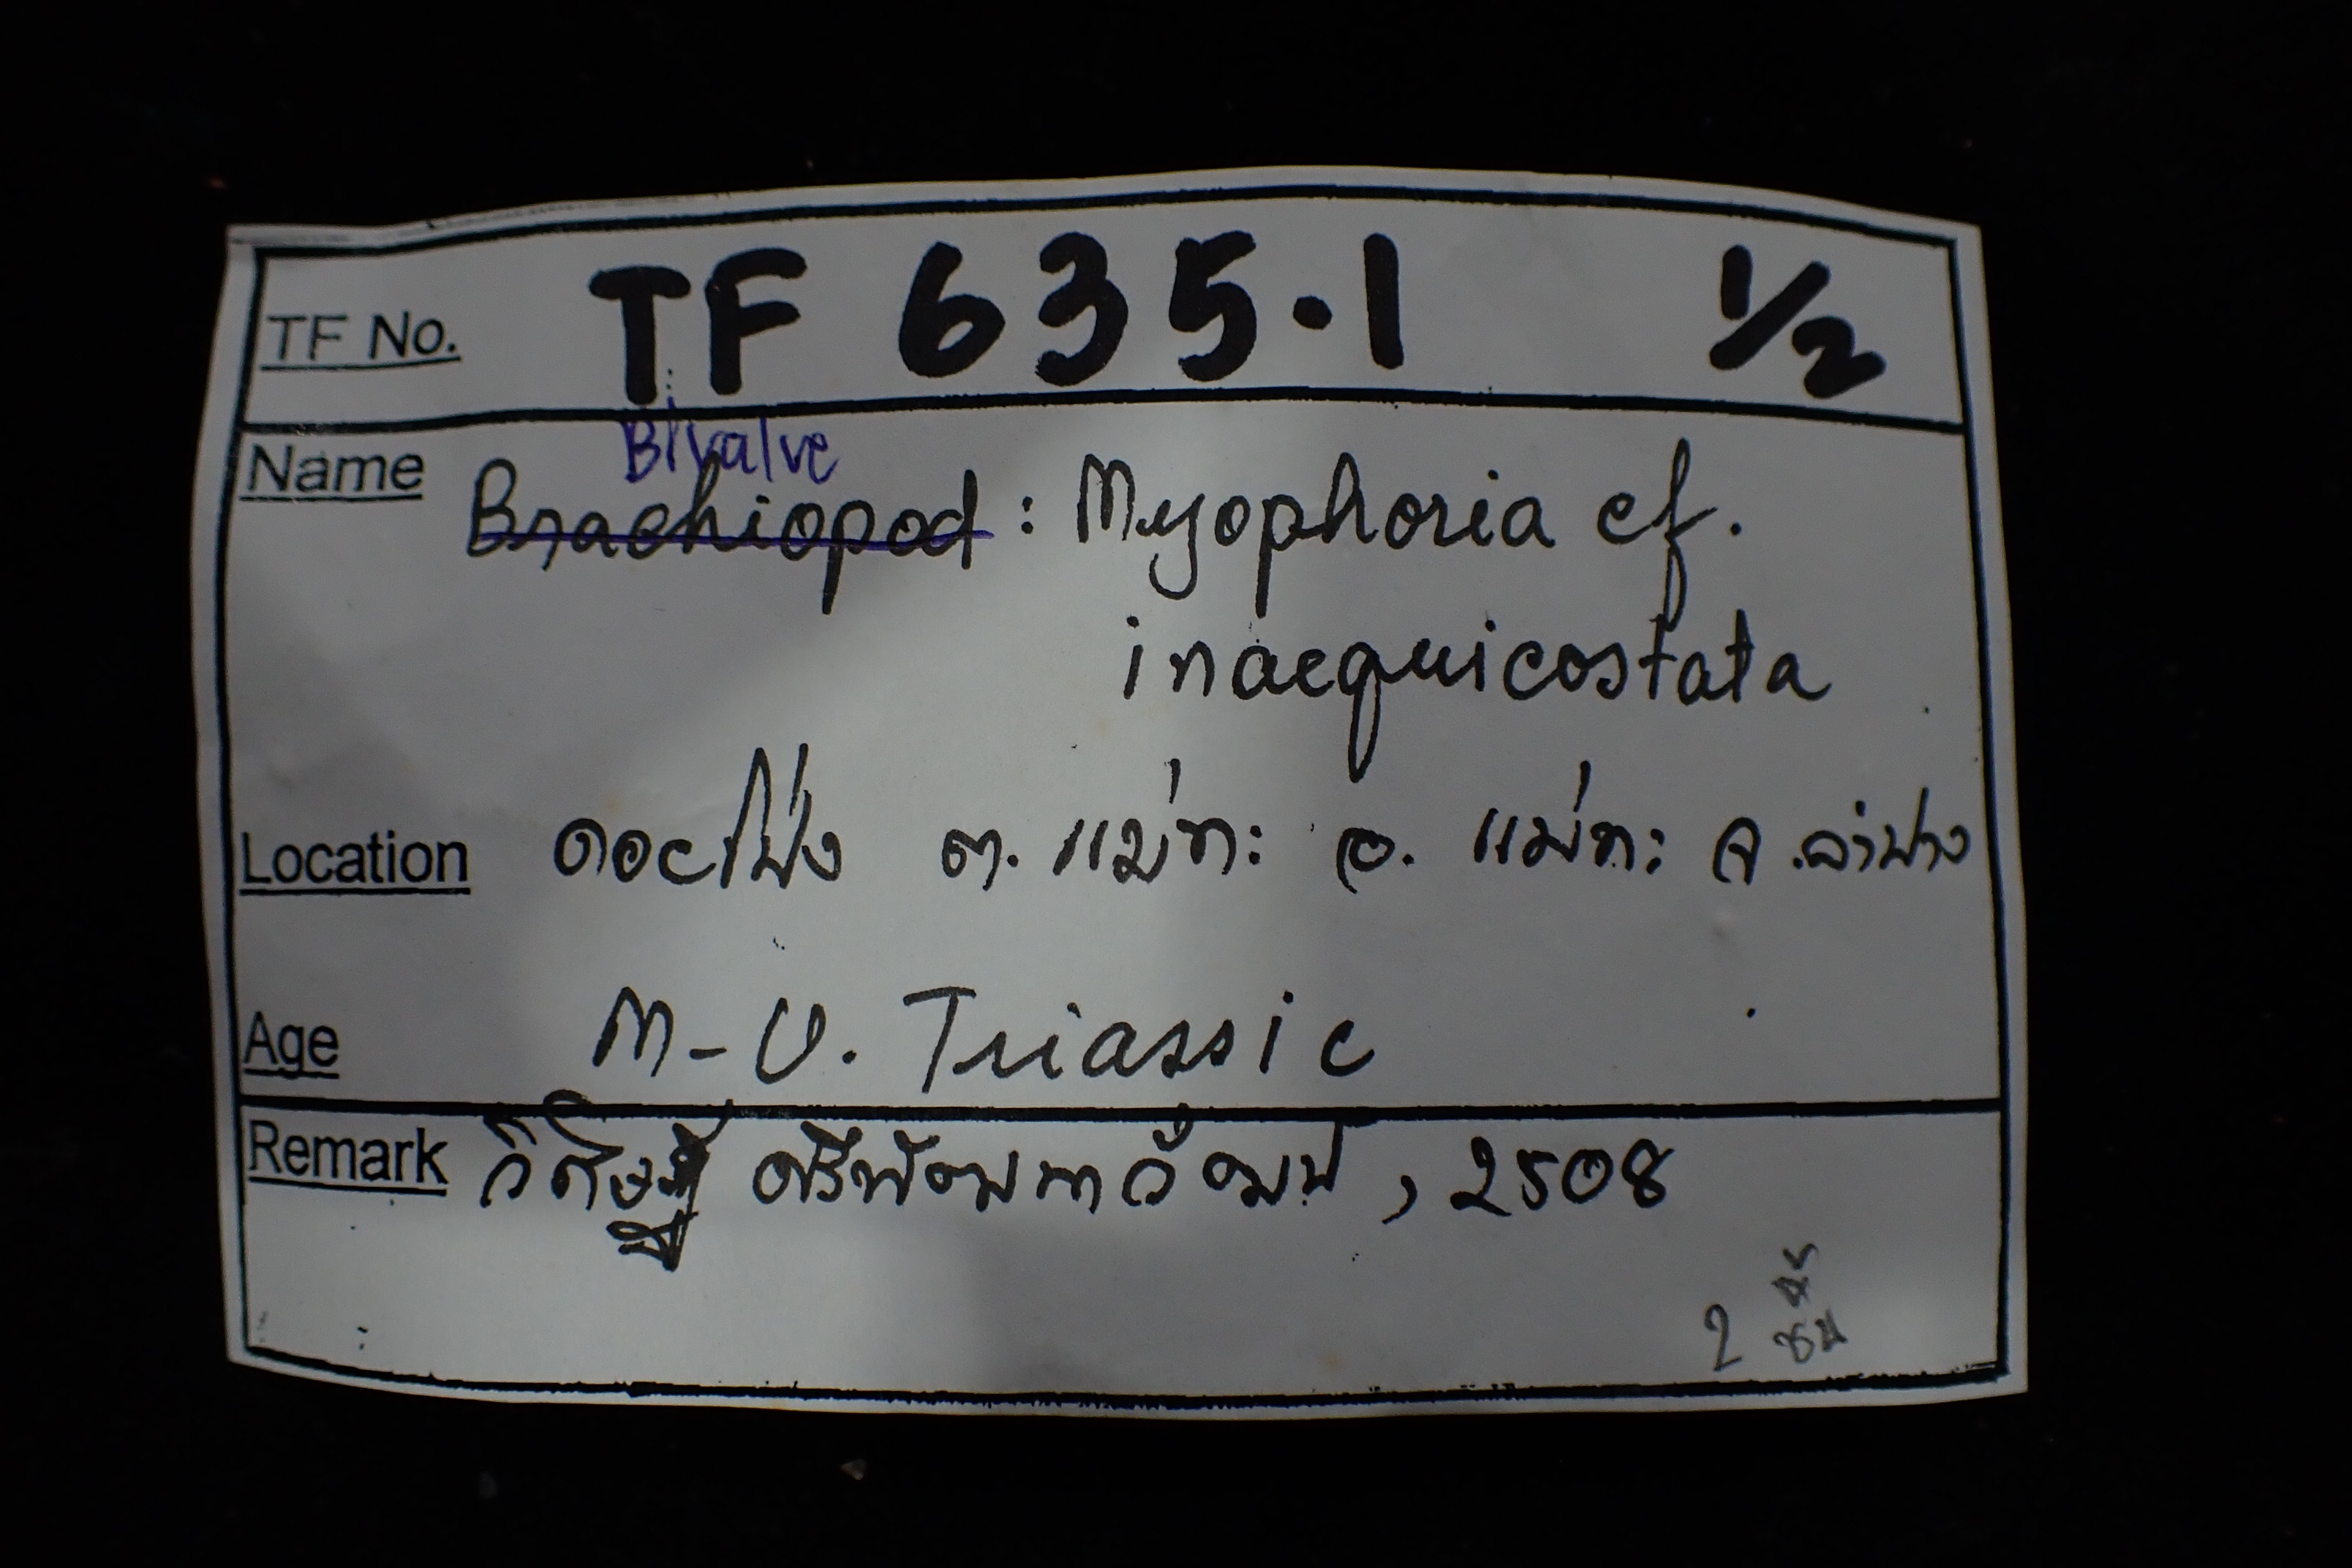 TF No. TF 635.1 1/2
Bivalve
Name Brachiopod : Myophoria cf.
inaequicostata
Location ดอยโป่ง ต. แม่ทะ อ. แม่ทะ จ.ลำปาง
Age M-U. Triassic
Remark วิศิษฐ์ ศรีพัฒนาวัฒน์, 2508
2 ชิ้น